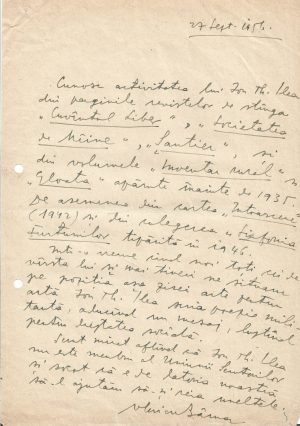 27 Sept. 1956.
Cunosc activitatea lui Ion Th. Ilea
din paginile revistelor de stînga
„Cuvîntul liber", „Societatea
de Mîine", „Șantier", și
din volumele „Inventar rural" și
„Gloata" apărute înainte de 1935.
De asemenea din cartea „Întoarceri"
(1942) și din culegerea „Simfonia
furtunilor" tipărită în 1946.
Într-o vreme cînd noi toți, cei de
vîrsta lui și mai tineri ne situam
pe poziția așa zisei arte pentru
artă Ion Th. Ilea scria poezie mili-
tantă, aducînd un mesaj, luptînd
pentru dreptatea socială.
Sunt mirat aflînd că Ion Th. Ilea
nu este membru al Uniunii Scriitorilor
și socot că e de datoria noastră
să-l ajutăm să-și reia uneltele.